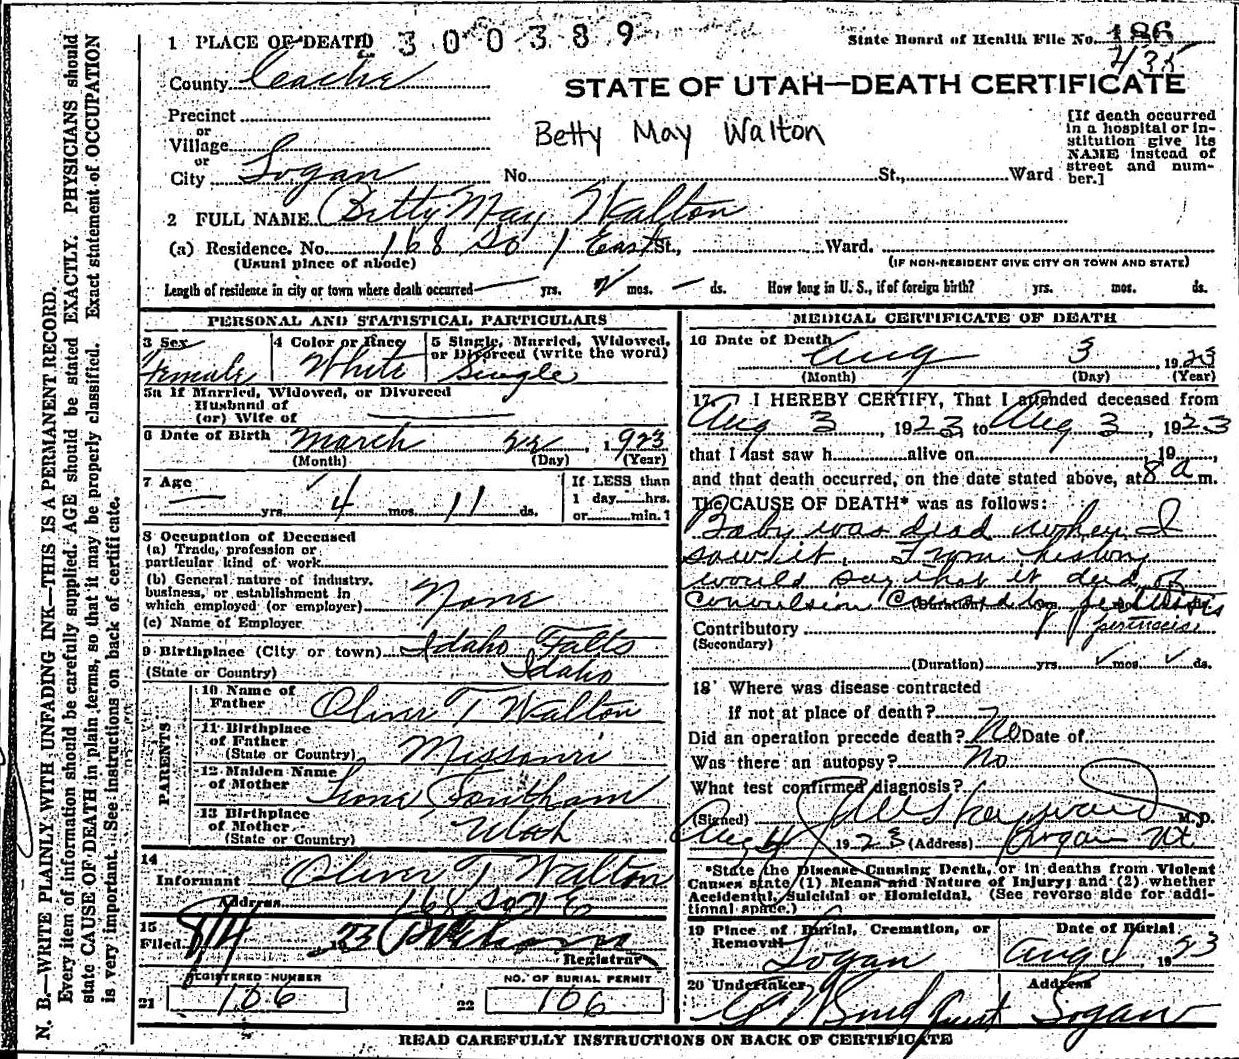 N. B.—WRITE PLAINLY WITH UNFADING INK—THIS IS A PERMANENT RECORD.
Every item of information should be carefully supplied. AGE should be stated EXACTLY. PHYSICIANS should
state CAUSE OF DEATH in plain terms, so that it may be properly classified. Exact statement of OCCUPATION
is very important. See instructions on back of certificate.
1 PLACE OF DEATH
300389
State Board of Health File No. 186
435
County Cache
STATE OF UTAH—DEATH CERTIFICATE
Precinct
or
Village
or
City Logan No. St., Ward
Betty May Walton
[If death occurred
in a hospital or in-
stitution give its
NAME instead of
street and num-
ber.]
2 FULL NAME Betty May Walton
(a) Residence. No. 168 So 1 East St., Ward.
(Usual place of abode) (IF NON-RESIDENT GIVE CITY OR TOWN AND STATE)
Length of residence in city or town where death occurred — yrs. mos. — ds. How long in U. S., if of foreign birth? yrs. mos. ds.
PERSONAL AND STATISTICAL PARTICULARS
3 Sex 4 Color or Race 5 Single, Married, Widowed,
or Divorced (write the word)
Female White Single
5a If Married, Widowed, or Divorced
Husband of
(or) Wife of —
6 Date of Birth March 22 1923
(Month) (Day) (Year)
7 Age If LESS than
— yrs. 4 mos. 11 ds. 1 day hrs.
or min.
8 Occupation of Deceased
(a) Trade, profession or
particular kind of work
(b) General nature of industry,
business, or establishment in
which employed (or employer) None
(c) Name of Employer
9 Birthplace (City or town) Idaho Falls
(State or Country) Idaho
PARENTS
10 Name of
Father Oliver T Walton
11 Birthplace
of Father
(State or Country) Missouri
12 Maiden Name
of Mother
13 Birthplace
of Mother
(State or Country) Utah
14
Informant Oliver T Walton
Address 168 So 1 E
15
Filed 8/4 1923
Registrar
REGISTERED NUMBER NO. OF BURIAL PERMIT
21 106 22 106
MEDICAL CERTIFICATE OF DEATH
16 Date of Death Aug 3 1923
(Month) (Day) (Year)
17 I HEREBY CERTIFY, That I attended deceased from
Aug 3, 1923, to Aug 3, 1923
that I last saw h alive on , 19 ,
and that death occurred, on the date stated above, at 8 a m.
The CAUSE OF DEATH* was as follows:
Baby was dead when I
saw it. From history
would say that it died of
Convulsion Caused by
(Duration)
Contributory
(Secondary)
(Duration) yrs. mos. ds.
18 Where was disease contracted
if not at place of death?
Did an operation precede death? No Date of
Was there an autopsy? No
What test confirmed diagnosis?
(Signed) M. D.
Aug 4 1923 (Address) Logan Ut
*State the Disease Causing Death, or in deaths from Violent
Causes state (1) Means and Nature of Injury; and (2) whether
Accidental, Suicidal or Homicidal. (See reverse side for addi-
tional space.)
19 Place of Burial, Cremation, or
Removal Date of Burial
Logan Aug 4, 1923
20 Undertaker Address
Logan
READ CAREFULLY INSTRUCTIONS ON BACK OF CERTIFICATE